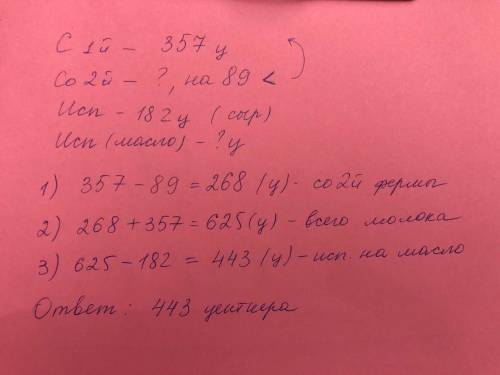 С 1й - 357 ц
Со 2й - ?, на 89 <
Исп - 182 ц (сыр)
Исп (масло) - ? ц
1) 357 - 89 = 268 (ц) - со 2й фермы
2) 268 + 357 = 625 (ц) - всего молока
3) 625 - 182 = 443 (ц) - исп. на масло
Ответ: 443 центнера